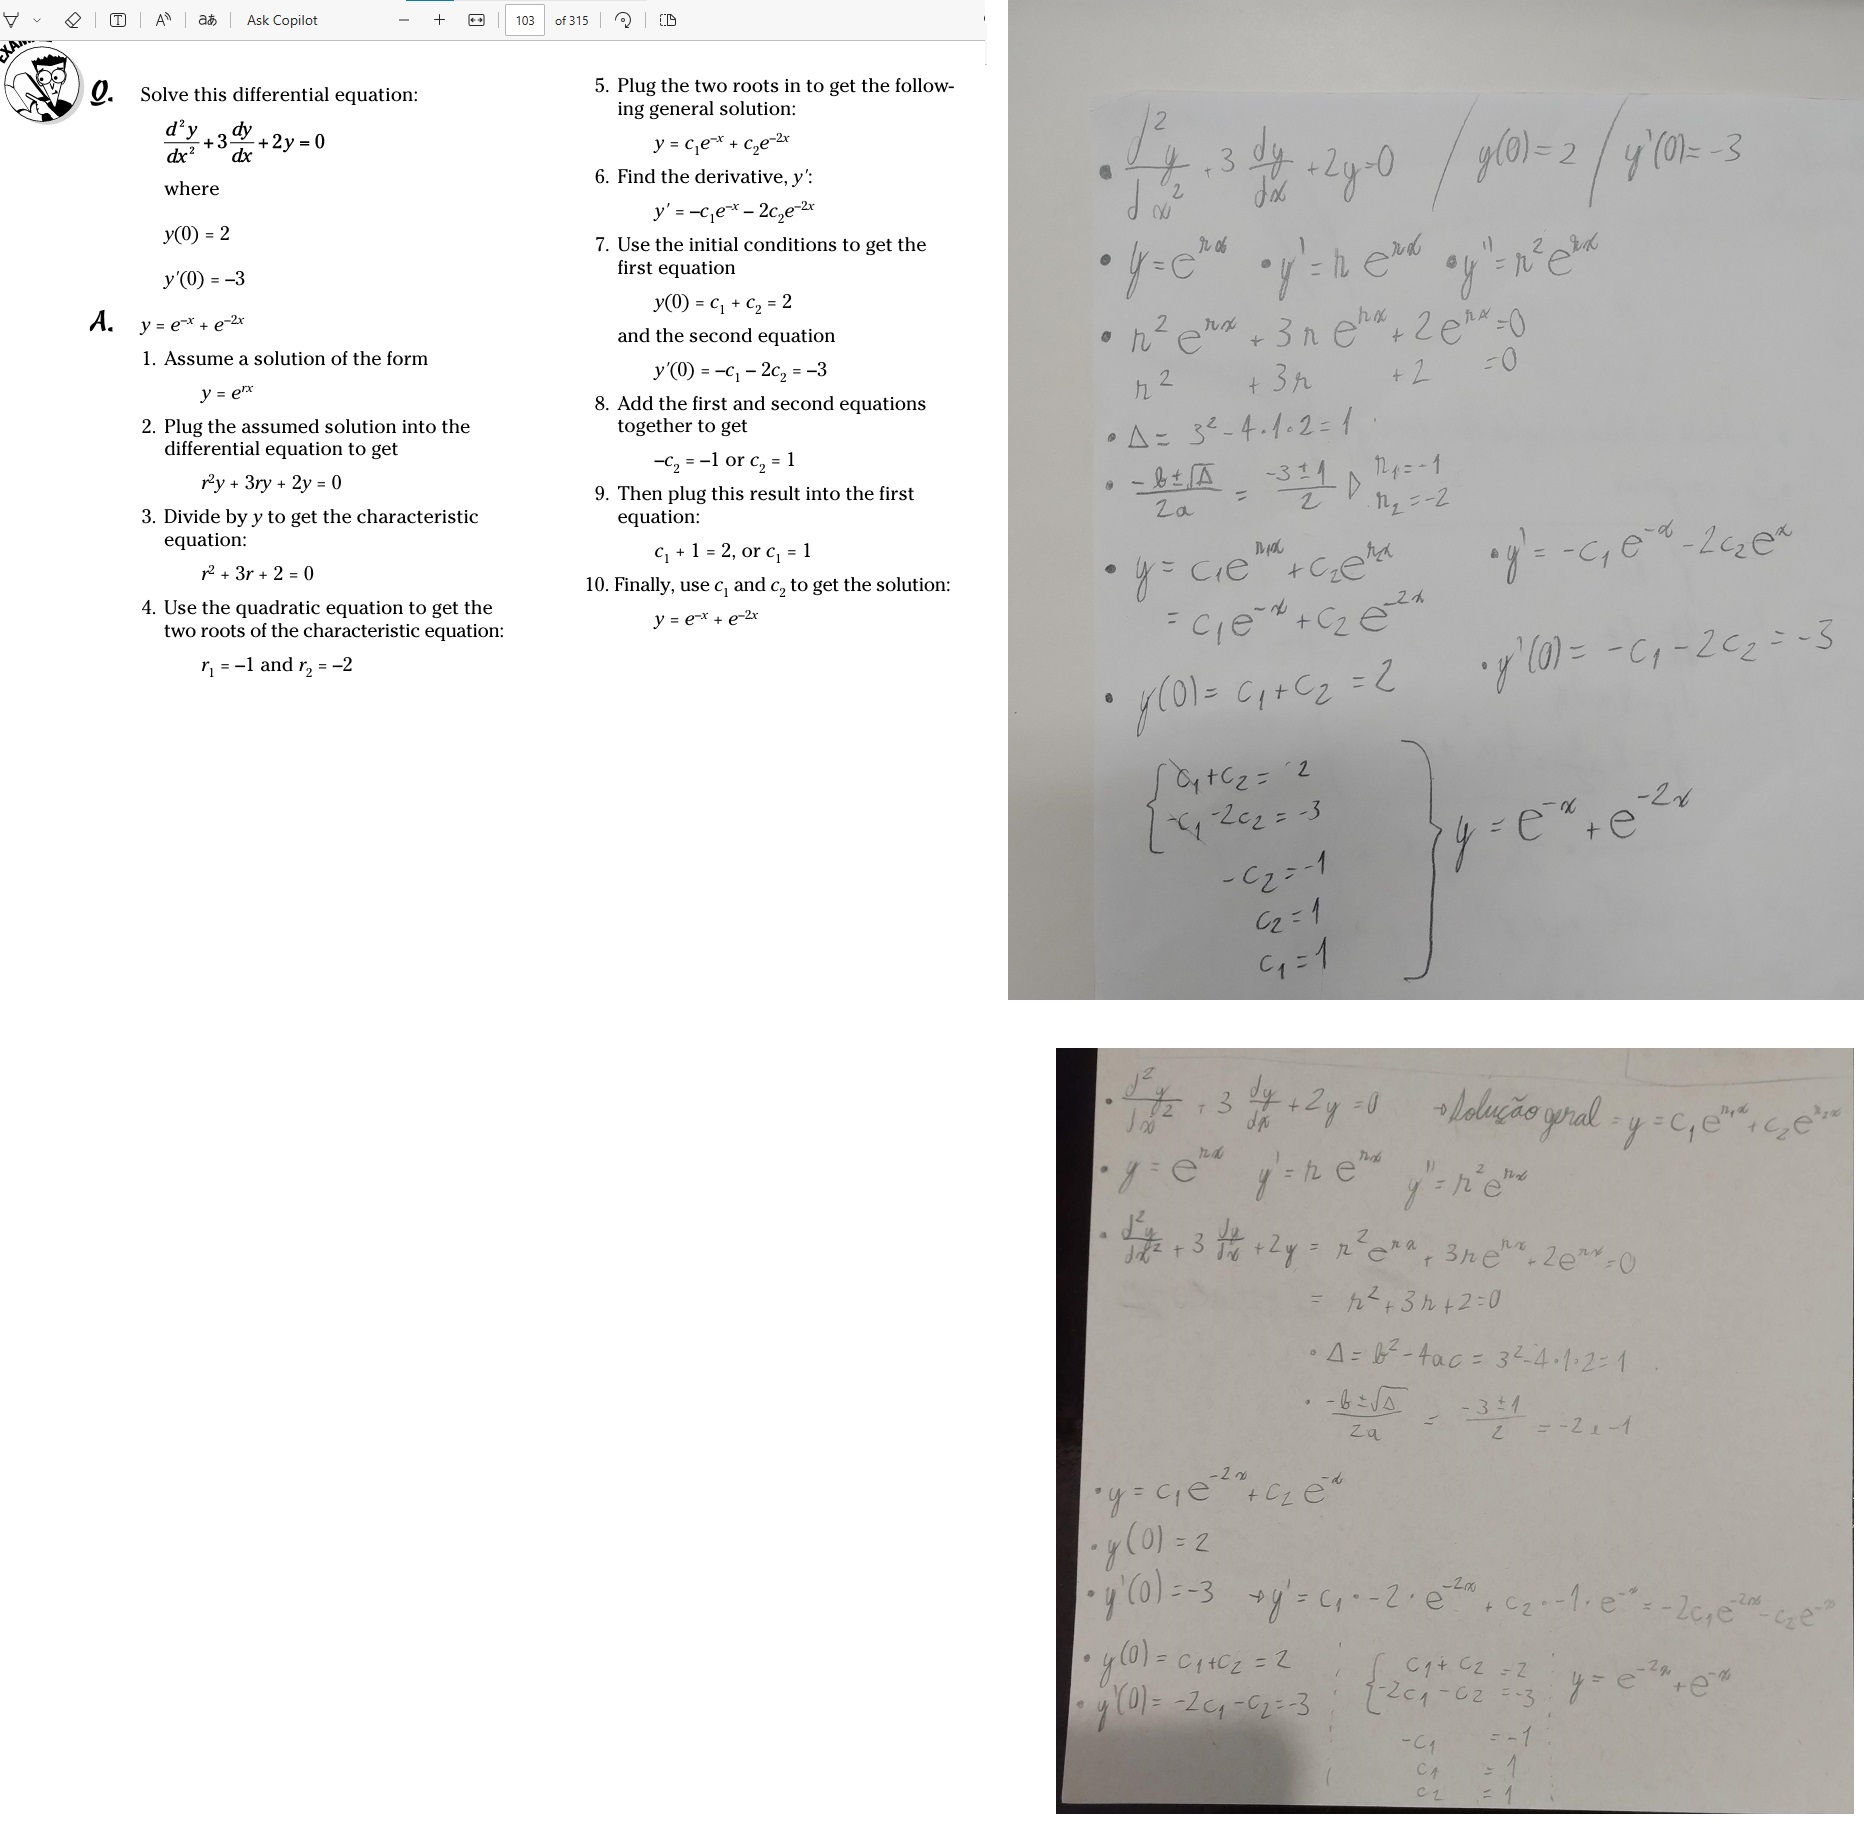 Ask Copilot
103 of 315
Q. Solve this differential equation:
d²y/dx² + 3 dy/dx + 2y = 0
where
y(0) = 2
y′(0) = –3
A. y = e⁻ˣ + e⁻²ˣ
1. Assume a solution of the form
y = eʳˣ
2. Plug the assumed solution into the
differential equation to get
r²y + 3ry + 2y = 0
3. Divide by y to get the characteristic
equation:
r² + 3r + 2 = 0
4. Use the quadratic equation to get the
two roots of the characteristic equation:
r₁ = –1 and r₂ = –2
5. Plug the two roots in to get the follow-
ing general solution:
y = c₁e⁻ˣ + c₂e⁻²ˣ
6. Find the derivative, y′:
y′ = –c₁e⁻ˣ – 2c₂e⁻²ˣ
7. Use the initial conditions to get the
first equation
y(0) = c₁ + c₂ = 2
and the second equation
y′(0) = –c₁ – 2c₂ = –3
8. Add the first and second equations
together to get
–c₂ = –1 or c₂ = 1
9. Then plug this result into the first
equation:
c₁ + 1 = 2, or c₁ = 1
10. Finally, use c₁ and c₂ to get the solution:
y = e⁻ˣ + e⁻²ˣ
• d²y/dx² + 3 dy/dx + 2y = 0 / y(0) = 2 / y'(0) = -3
• y = eʳˣ • y' = r eʳˣ • y'' = r² eʳˣ
• r² eʳˣ + 3r eʳˣ + 2eʳˣ = 0
r² + 3r + 2 = 0
• Δ = 3² - 4·1·2 = 1
• (-b ± √Δ)/2a = (-3 ± 1)/2 ▷ r₁ = -1
r₂ = -2
• y = c₁e^(r₁x) + c₂e^(r₂x) • y' = -c₁e⁻ˣ - 2c₂eˣ
= c₁e⁻ˣ + c₂e⁻²ˣ
• y(0) = c₁ + c₂ = 2 • y'(0) = -c₁ - 2c₂ = -3
{ c₁ + c₂ = 2
-c₁ - 2c₂ = -3 } y = e⁻ˣ + e⁻²ˣ
-c₂ = -1
c₂ = 1
c₁ = 1
• d²y/dx² + 3 dy/dx + 2y = 0 → Solução geral = y = c₁e^(r₁x) + c₂e^(r₂x)
• y = eʳˣ y' = r eʳˣ y'' = r² eʳˣ
• d²y/dx² + 3 dy/dx + 2y = r² eʳˣ + 3r eʳˣ + 2eʳˣ = 0
= r² + 3r + 2 = 0
• Δ = b² - 4ac = 3² - 4·1·2 = 1
• (-b ± √Δ)/2a = (-3 ± 1)/2 = -2 e -1
• y = c₁e⁻²ˣ + c₂e⁻ˣ
• y(0) = 2
• y'(0) = -3 → y' = c₁·-2·e⁻²ˣ + c₂·-1·e⁻ˣ = -2c₁e⁻²ˣ - c₂e⁻ˣ
• y(0) = c₁ + c₂ = 2 { c₁ + c₂ = 2 y = e⁻²ˣ + e⁻ˣ
• y'(0) = -2c₁ - c₂ = -3 -2c₁ - c₂ = -3
-c₁ = -1
c₁ = 1
c₂ = 1